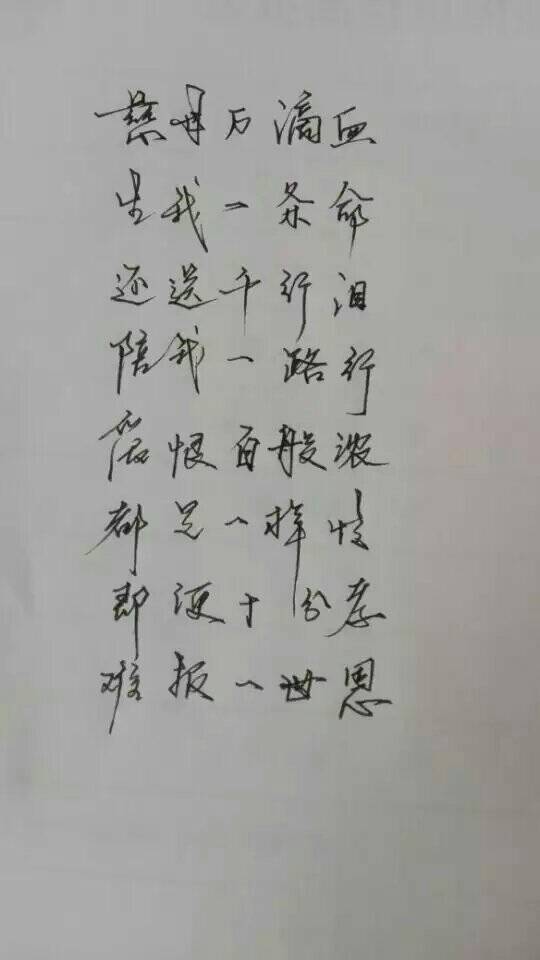 慈母万滴血
生我一条命
还送千行泪
陪我一路行
爱恨百般浓
都是一样情
即便十分孝
难报一世恩